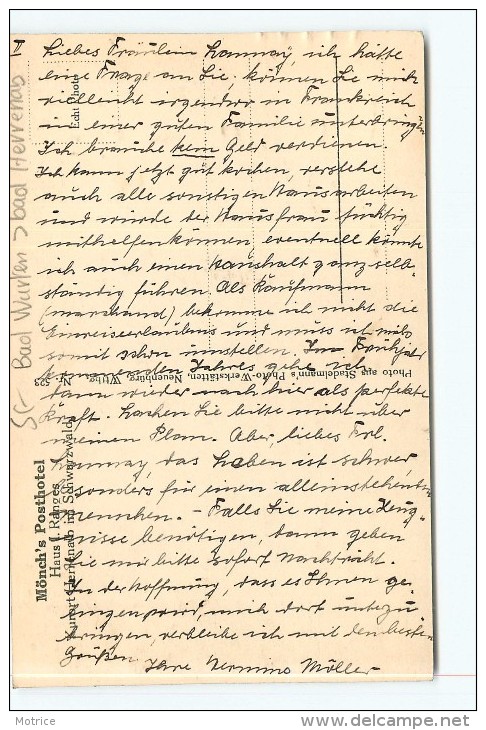 II
Liebes Fräulein Launay, ich hätte
eine Frage an Sie. Können Sie mich
vielleicht irgendwo in Frankreich
in einer guten Familie unterbringen
Ich brauche kein Geld verdienen.
Ich kann jetzt gut kochen, verstehe
auch alle sonstigen Hausarbeiten
und würde der Hausfrau tüchtig
mithelfen können, eventuell könnte
ich auch einen Haushalt ganz selb-
ständig führen. Als Kaufmann
(marchand) bekomme ich nicht die
Einreiseerlaubnis und muss ich mich
somit schon umstellen. Im Frühjahr
kommenden Jahres gehe ich
dann wieder nach hier als perfekte
Kraft. Lachen Sie bitte nicht über
meinen Plan. Aber, liebes Frl.
Launay, das Leben ist schwer,
besonders für einen alleinstehenden
Menschen. - Falls Sie meine Zeug-
nisse benötigen, dann geben
Sie mir bitte sofort Nachricht.
In der Hoffnung, dass es Ihnen ge-
lingen wird, mich dort unterzu-
bringen, verbleibe ich mit den besten
Grüßen
Ihre Hermine Möller
Echt Photo
Photo aus Stadelmann's Photo-Werkstätten, Neuenbürg, Wttbg.
Nr. 523
Mönch's Posthotel
Haus I. Ranges
Kurort Herrenalb im Schwarzwald
Bad Herrenalb
Motrice
http://www.delcampe.net